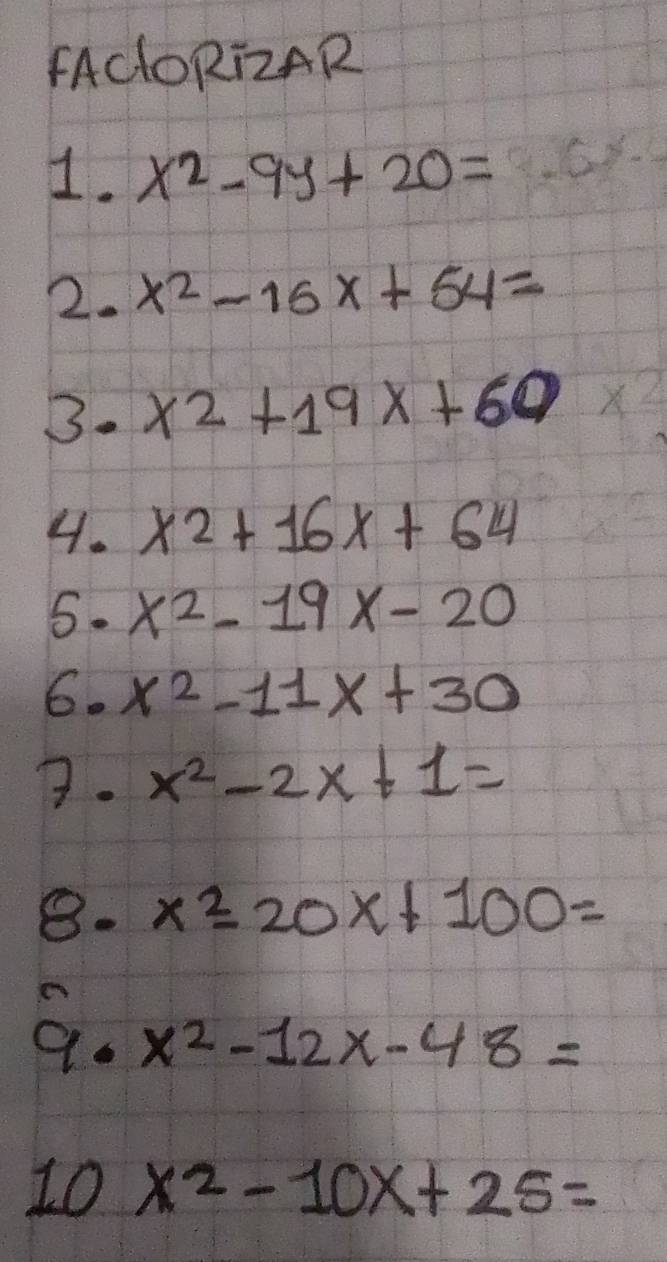 FACTORIZAR
1. x² - 9y + 20 =
2. x² - 16x + 64 =
3. x2 + 19x + 60
4. x2 + 16x + 64
5. x² - 19x - 20
6. x² - 11x + 30
7. x² - 2x + 1 =
8. x² - 20x + 100 =
9. x² - 12x - 48 =
10 x² - 10x + 25 =